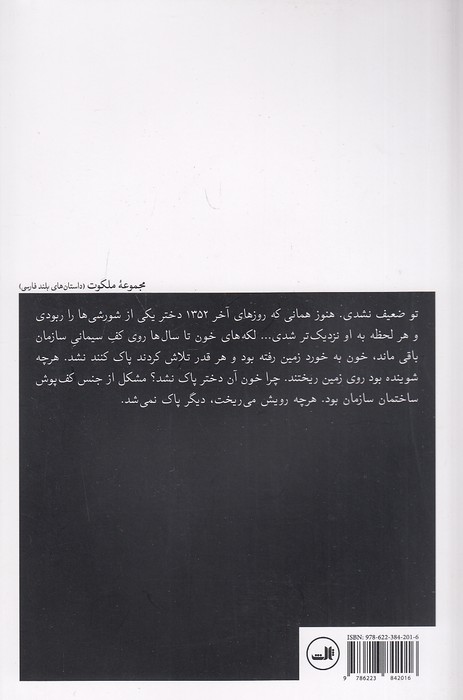 مجموعهٔ ملکوت (داستان‌های بلند فارسی)
تو ضعیف نشدی. هنوز همانی که روزهای آخر ۱۳۵۲ دختر یکی از شورشی‌ها را ربودی
و هر لحظه به او نزدیک‌تر شدی... لکه‌های خون تا سال‌ها روی کفِ سیمانیِ سازمان
باقی ماند، خون به خورد زمین رفته بود و هر قدر تلاش کردند پاک کنند نشد. هرچه
شوینده بود روی زمین ریختند. چرا خون آن دختر پاک نشد؟ مشکل از جنس کف‌پوش
ساختمان سازمان بود. هرچه رویش می‌ریخت، دیگر پاک نمی‌شد.
ISBN: 978-622-384-201-6
ثالث
9 786223 842016